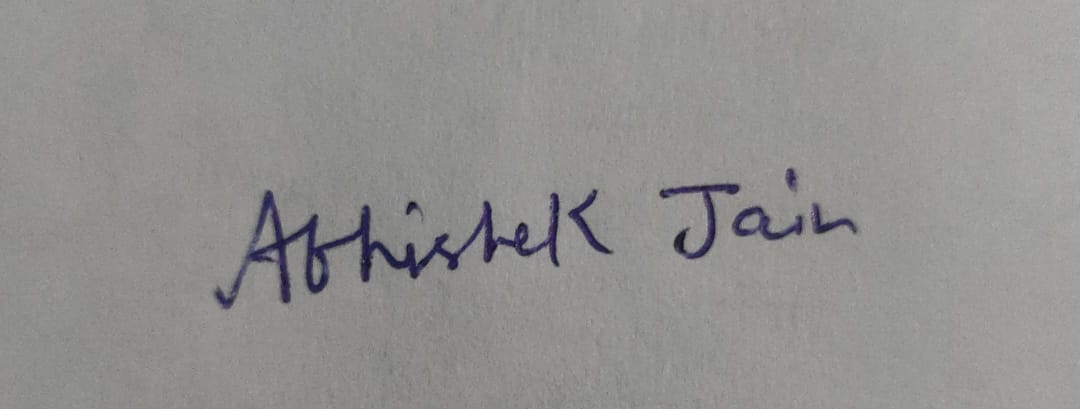 Abhishek Jain